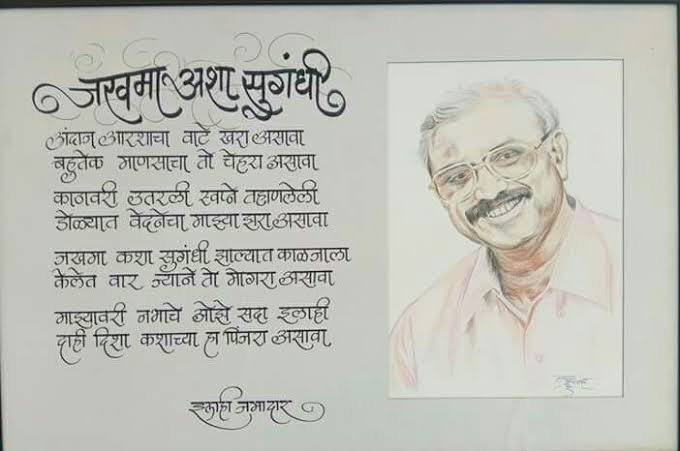 जखमा अशा सुगंधी
अंदाज आरशाचा वाटे खरा असावा
बहुतेक माणसाचा तो चेहरा असावा
काठावरी उतरली स्वप्ने तहाणलेली
डोळ्यात वेदनेचा माझ्या झरा असावा
जखमा कशा सुगंधी झाल्यात काळजाला
केलेत वार ज्याने तो मोगरा असावा
माझ्यावरी नभाचे ओझे सदा इलाही
दाही दिशा कशाच्या हा पिंजरा असावा
इलाही जमादार